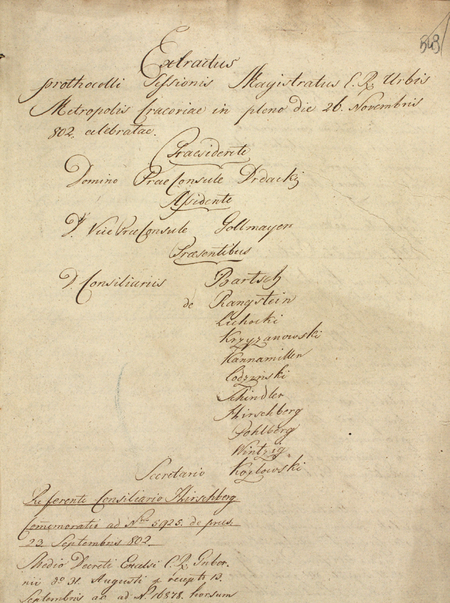 543
Extractus
prothocolli Sessionis Magistratus C. R. Urbis
Metropolis Cracoviae in pleno die 26. Novembris
802. celebratae.
Praesidente
Domino PraeConsule Drdacki
Assidente
D. Vice PraeConsule Gollmayer
Praesentibus
D. Consiliariis Bartsch
de Rangstein
Lichocki
Krzyżanowski
Hannamiller
Schindler
Hirschberg
Pohlberg
Wintzig
Secretario Kozlowski
Referente Consiliario Hirschberg
Commemoratio ad Nrum 5925. de praes
22 Septembris 802
Medio Decreti Excelsi C. R. Guber-
nii d° 31. Augusti recepti 13.
Septembris ac ad N. 16878. horsum